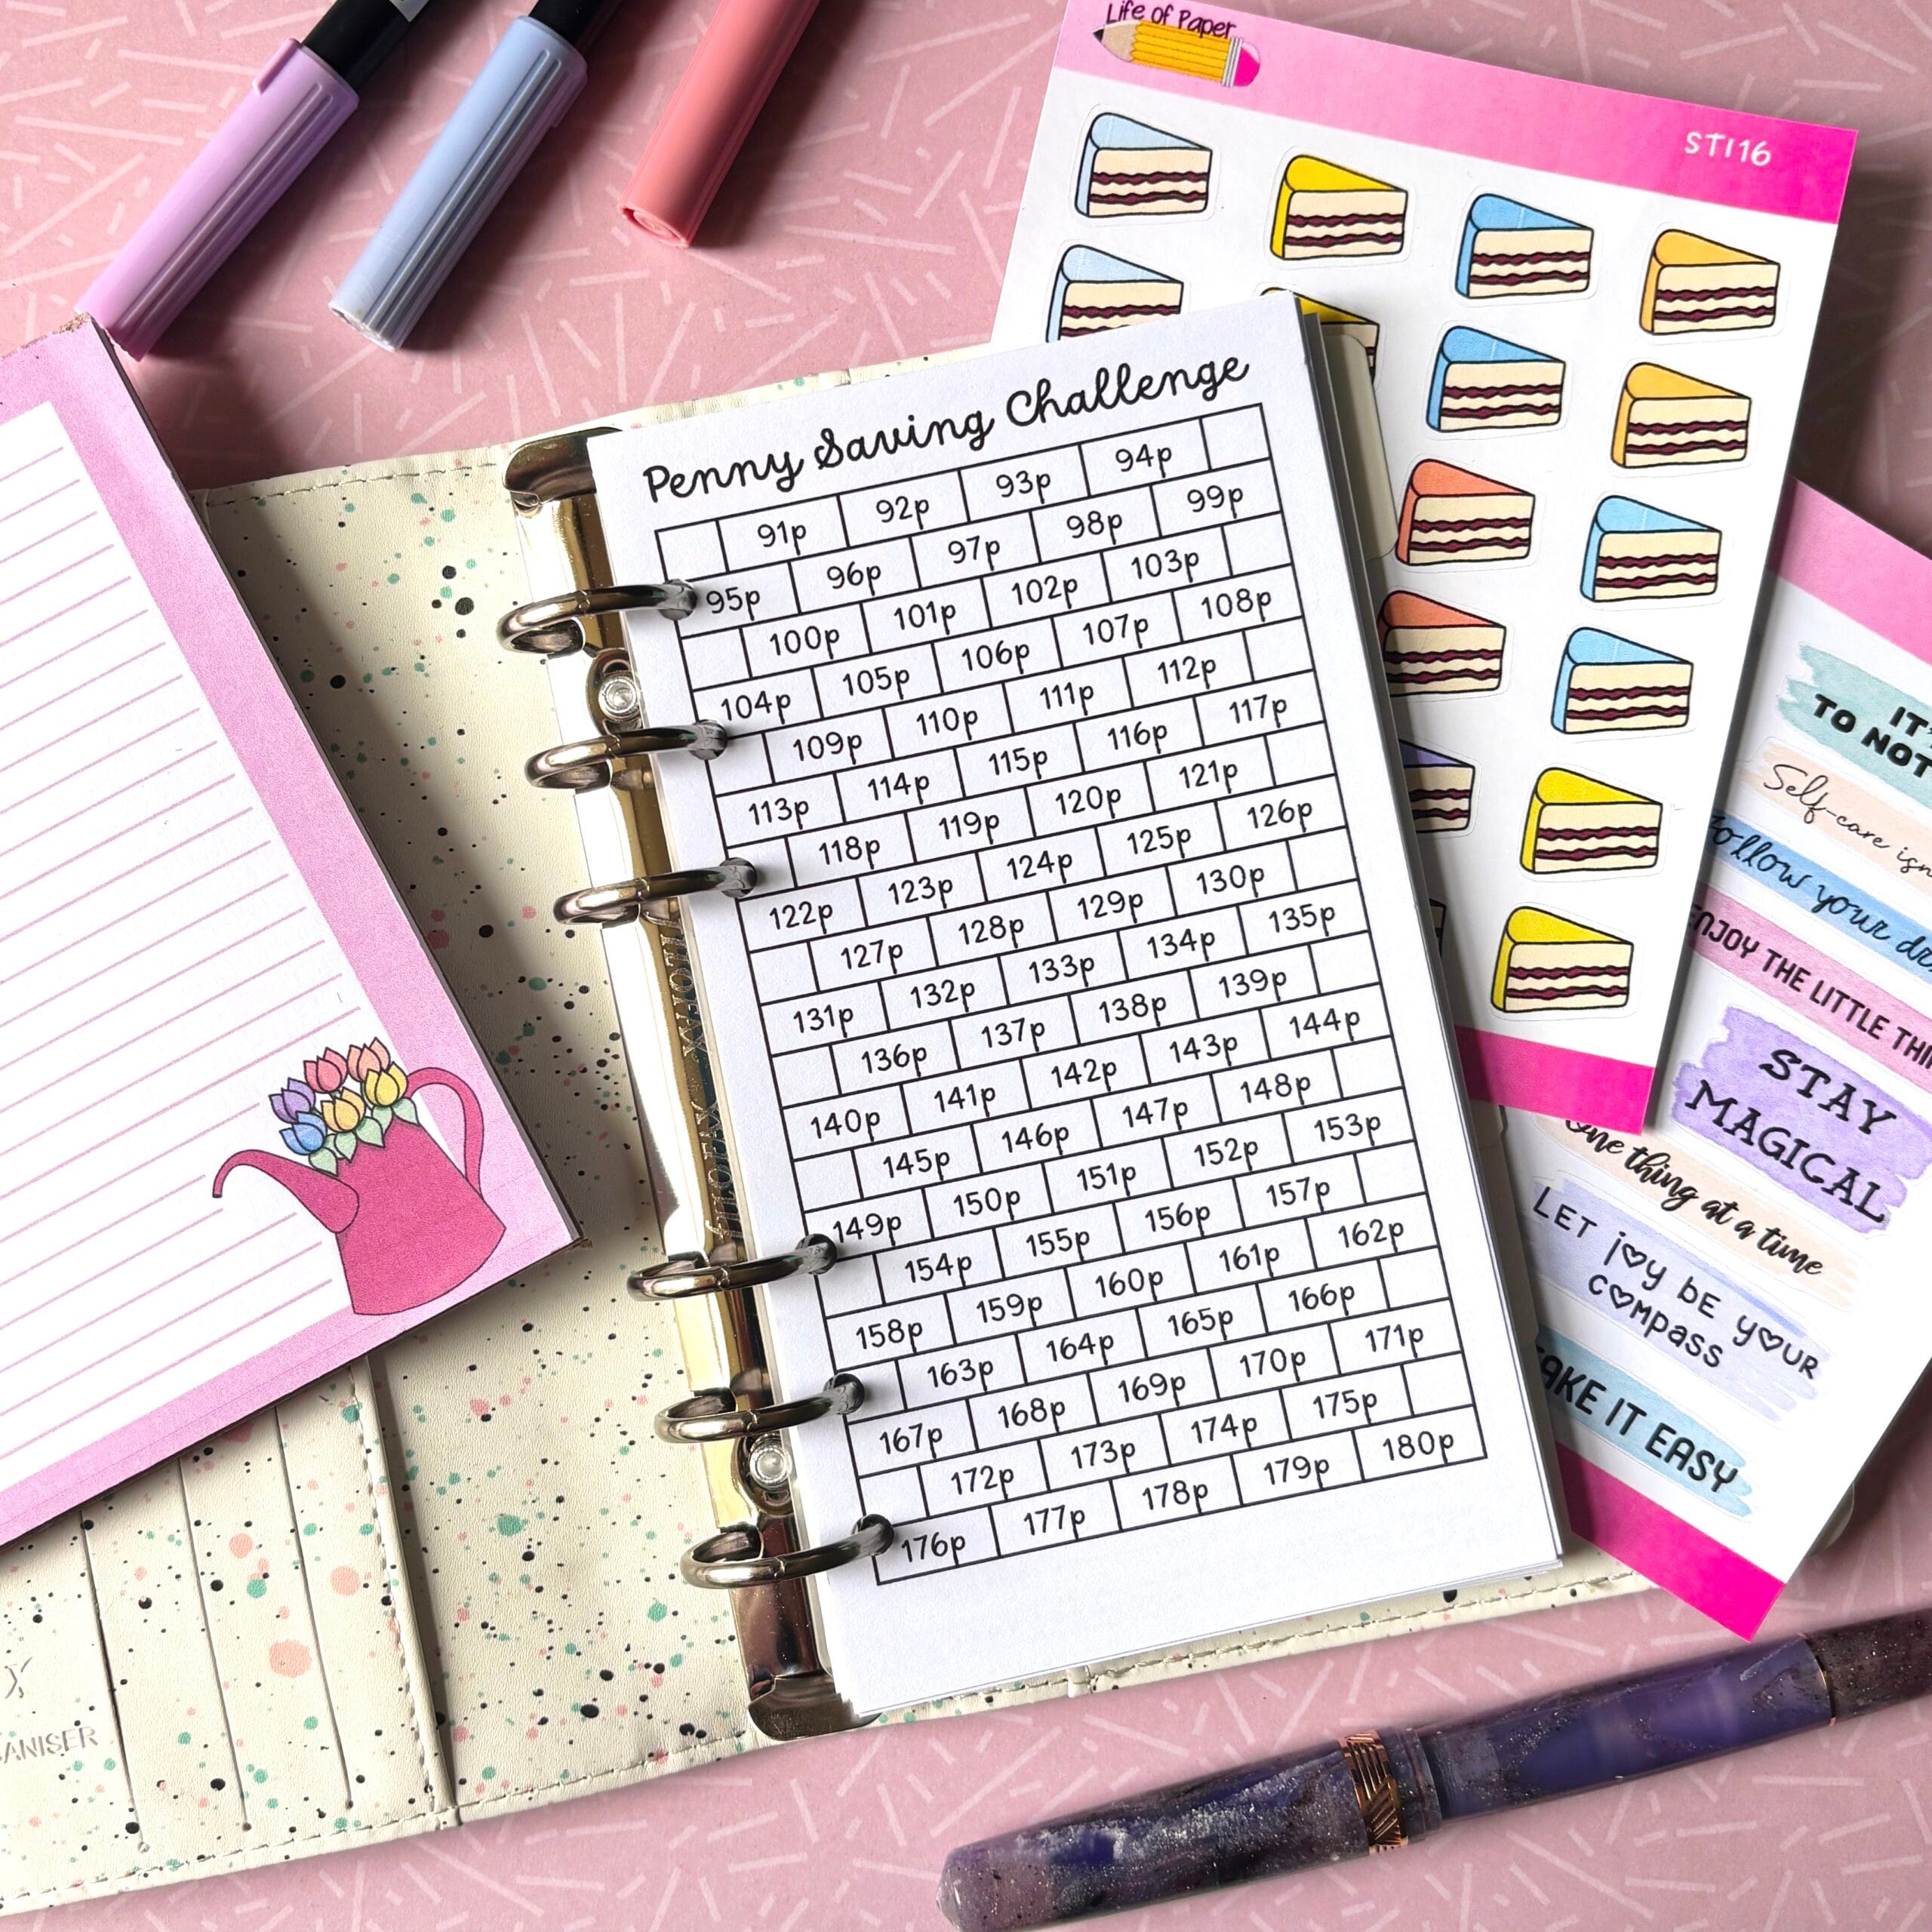 Life of Paper
STI16
Penny Saving Challenge
91p 92p 93p 94p
95p 96p 97p 98p 99p
100p 101p 102p 103p
104p 105p 106p 107p 108p
109p 110p 111p 112p
113p 114p 115p 116p 117p
118p 119p 120p 121p
122p 123p 124p 125p 126p
127p 128p 129p 130p
131p 132p 133p 134p 135p
136p 137p 138p 139p
140p 141p 142p 143p 144p
145p 146p 147p 148p
149p 150p 151p 152p 153p
154p 155p 156p 157p
158p 159p 160p 161p 162p
163p 164p 165p 166p
167p 168p 169p 170p 171p
172p 173p 174p 175p
176p 177p 178p 179p 180p
TO NOT
Self-care
your
THE LITTLE
STAY
MAGICAL
one thing at a time
LET joy BE yOUR
COMPASS
IT EASY